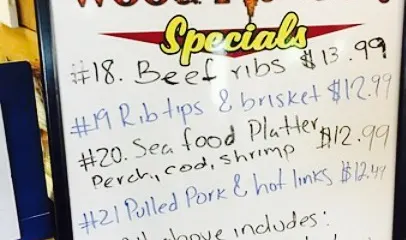 Specials
#18. Beef ribs $13.99
#19 Rib tips & brisket $12.99
#20. Sea food Platter $12.99
Perch, cod, shrimp
#21 Pulled Pork & hot links $12.49
above includes: